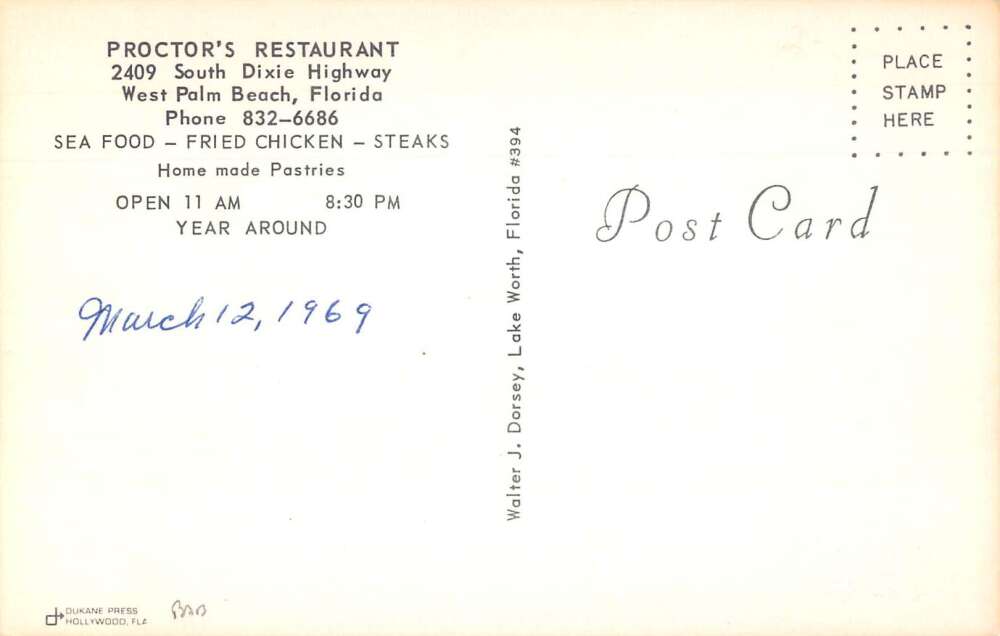 PROCTOR'S RESTAURANT
2409 South Dixie Highway
West Palm Beach, Florida
Phone 832-6686
SEA FOOD – FRIED CHICKEN – STEAKS
Home made Pastries
OPEN 11 AM 8:30 PM
YEAR AROUND
March 12, 1969
DUKANE PRESS
HOLLYWOOD, FLA
Walter J. Dorsey, Lake Worth, Florida #394
PLACE
STAMP
HERE
Post Card